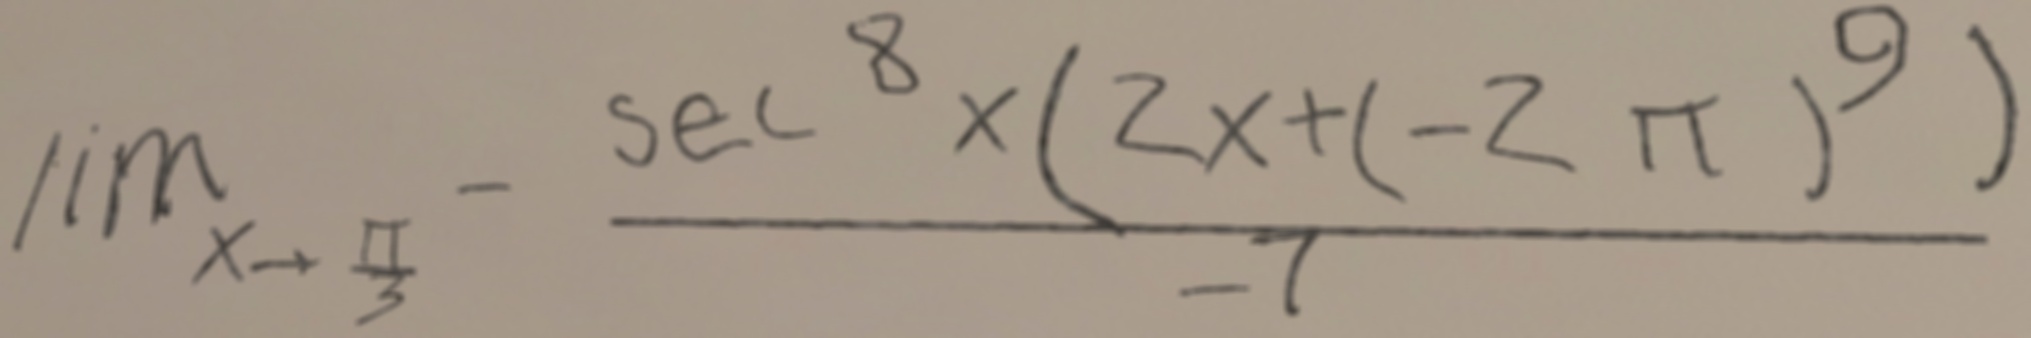 \lim_{x \to \frac{\pi}{3}^-} \frac{\sec^8 x (2x + (-2\pi)^9)}{-7}